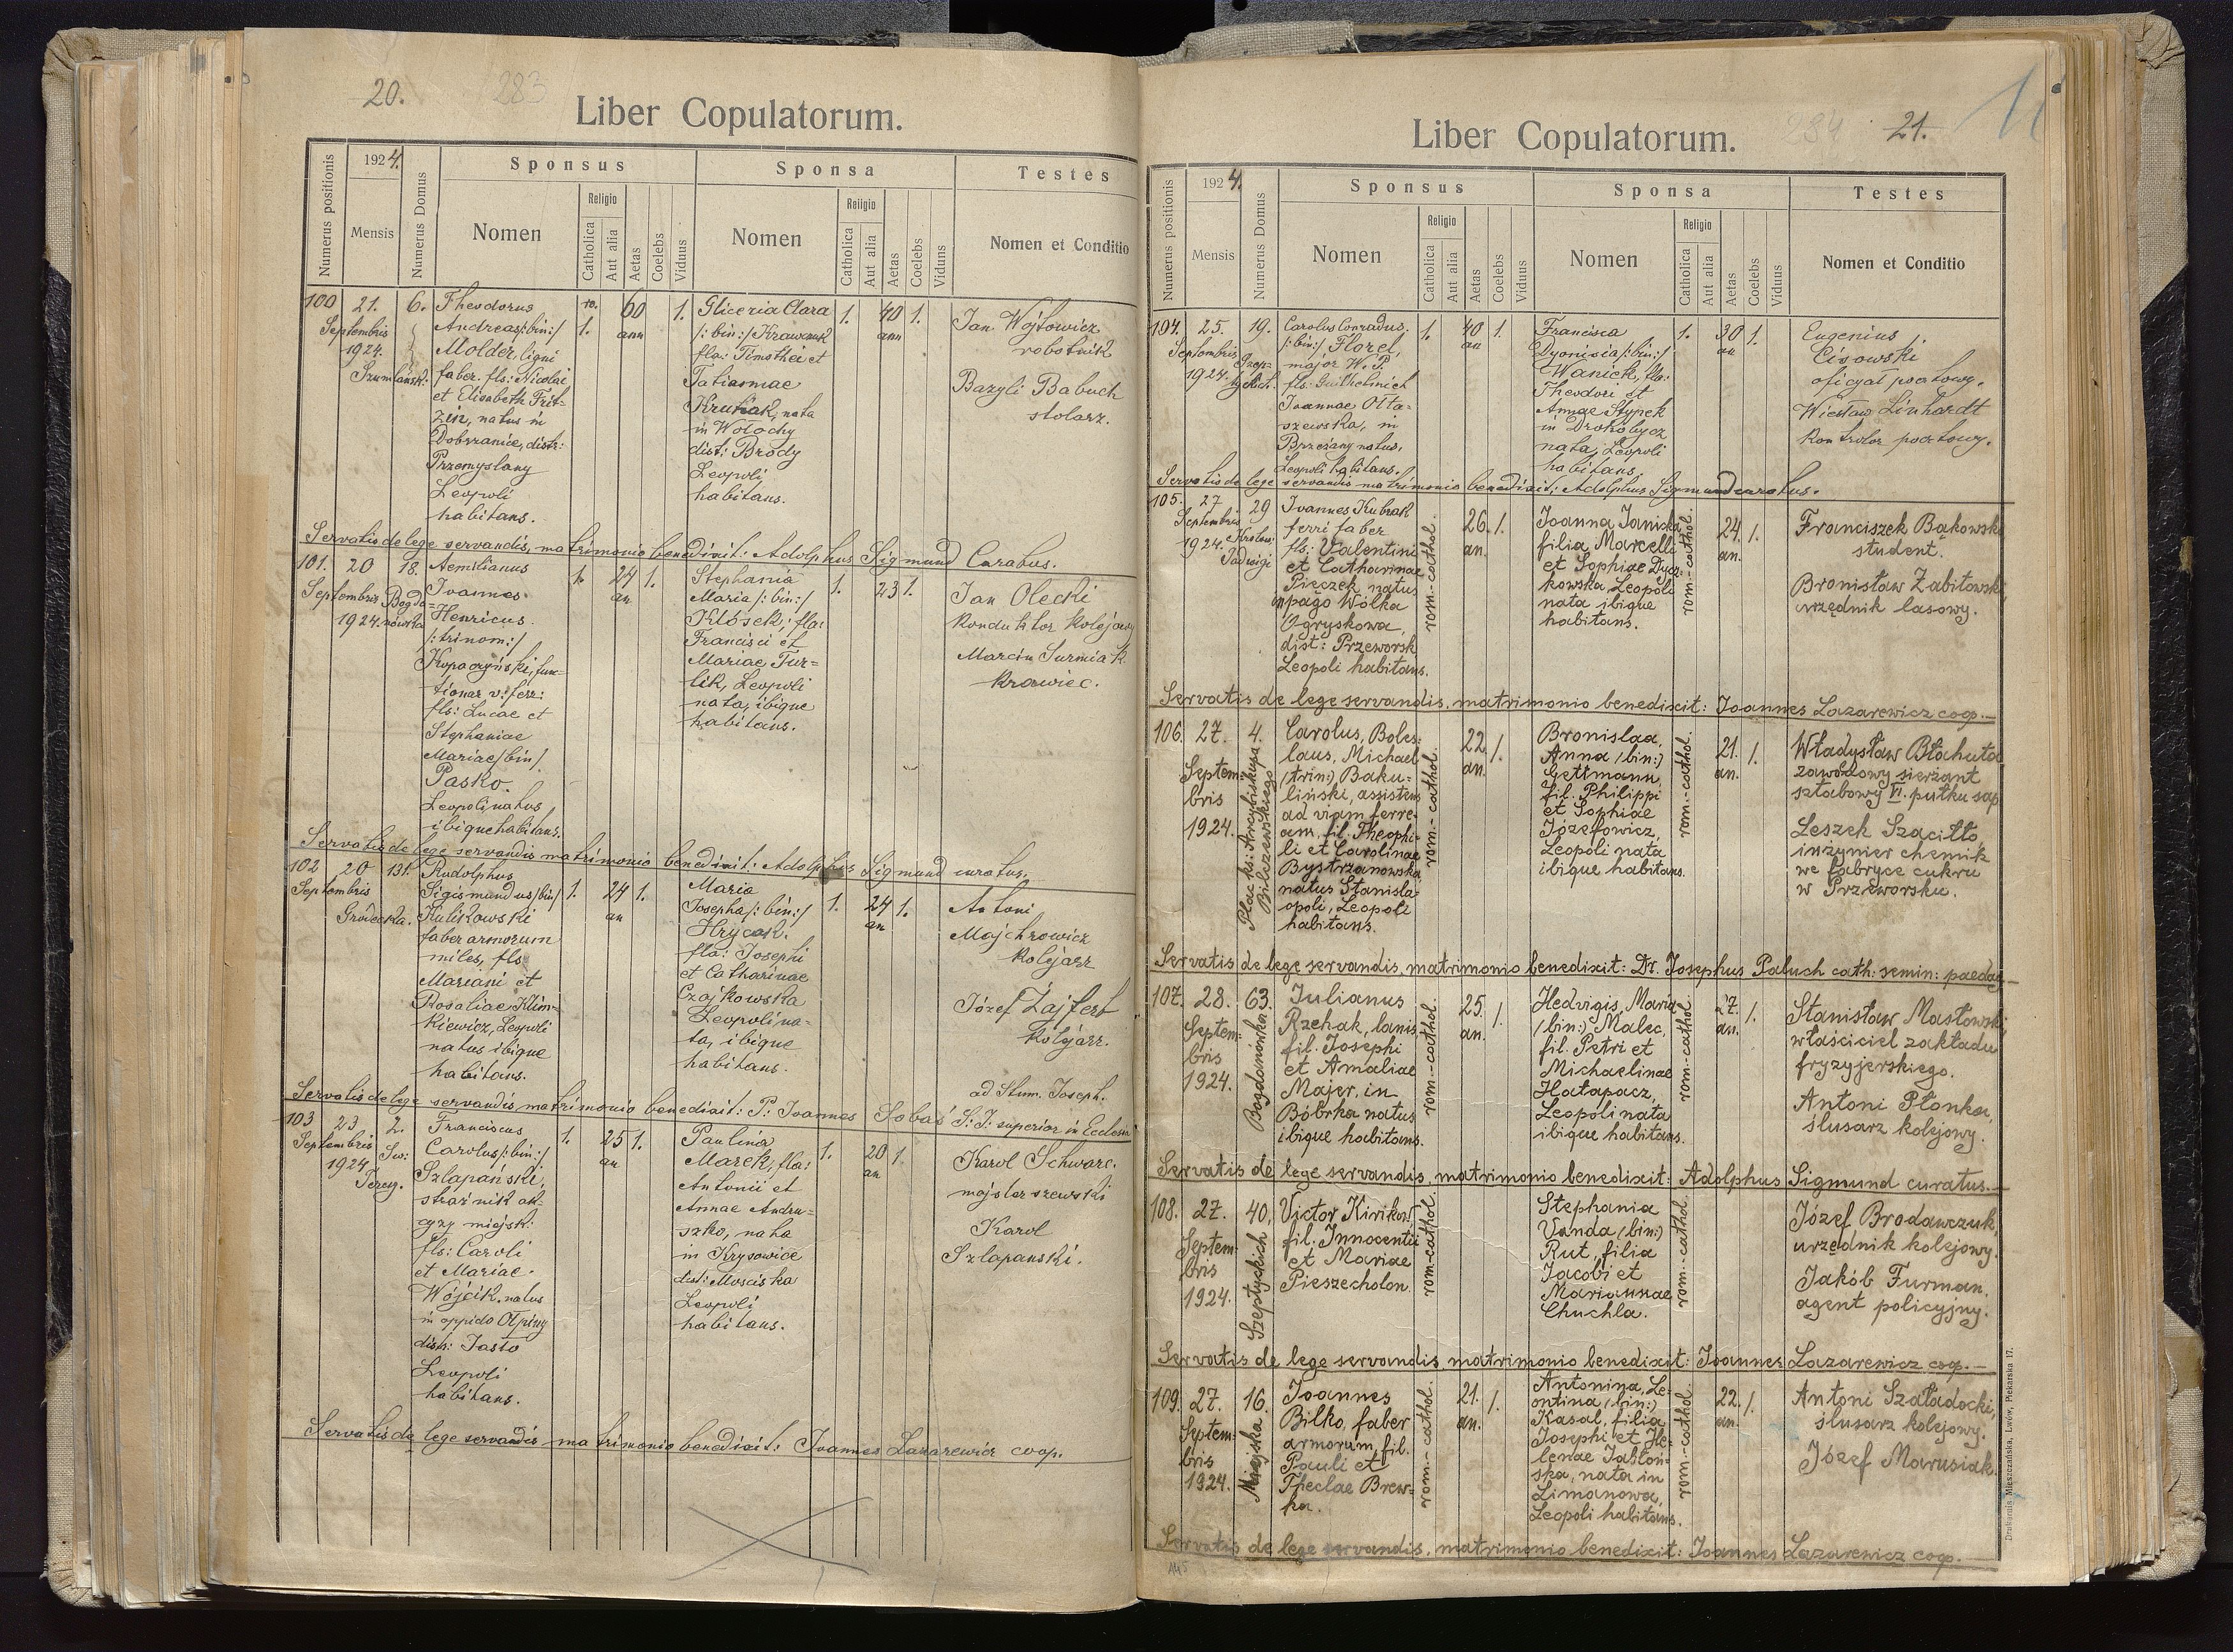 20.
283
Liber Copulatorum.
Numerus positionis
1924.
Mensis
Numerus Domus
Sponsus
Nomen
Religio
Catholica
Aut alia
Aetas
Coelebs
Viduus
Sponsa
Nomen
Religio
Catholica
Aut alia
Aetas
Coelebs
Viduus
Testes
Nomen et Conditio
100
21.
Septembris
1924.
6.
Theodorus
Andreas /:bin:/
Molder, ligni
faber. fls: Nicolai
et Elisabeth Frit=
zin, natus in
Dobrzanice, distr:
Przemyslany
Leopoli
habitans.
1.
60
ann
1.
Gliceria Clara
/:bin:/ Krawczuk
fla: Timothei et
Tatiannae
Krutiak, nata
in Wołochy
dist: Brody
Leopoli
habitans.
1.
40
ann
1.
Jan Wójtowicz
robotnik
Bazyli Babuch
stolarz.
Servatis de lege servandis, matrimonio benedixit: Adolphus Sigmund Curatus.
101.
20
Septembris
1924.
18.
Bogda=
nówka
Aemilianus
Joannes
Henricus
/:trinom:/
Kopaczyński, func=
tionar v: ferr:
fls: Lucae et
Stephaniae
Mariae /bin/
Pasko.
Leopoli natus
ibique habitans.
1.
24
an
1.
Stephania
Maria /:bin:/
Kłósek, fla:
Francisci et
Mariae Tur=
lik, Leopoli
nata, ibique
habitans.
1.
23
1.
Jan Olecki
konduktor kolejowy
Marcin Surmiak
krawiec.
Servatis de lege servandis matrimonio benedixit: Adolphus Sigmund curatus.
102
20
Septembris
131.
Grodecka.
Rudolphus
Sigismundus /bin/
Kulikowski
faber armorum
miles, fls
Mariani et
Rosaliae Klim=
kiewicz, Leopoli
natus ibique
habitans.
1.
24
an
1.
Maria
Josepha /:bin:/
Hrycak.
fla: Josephi
et Catharinae
Czajkowska
Leopoli na=
ta, ibique
habitans.
1.
24
an
1.
Antoni
Majchrowicz
kolejarz
Józef Zajfert
kolejarz.
ad Stum. Joseph.
Servatis de lege servandis matrimonio benedixit: P: Joannes Sobaś S: J: superior in Ecclesi
103
23
Septembris
1924
2.
Św:
Teresy.
Franciscus
Carolus /:bin:/
Szlapański,
strażnik ak=
cyzy miejsk:
fls: Caroli
et Mariae
Wójcik, natus
in oppido Ołpiny
distr: Jasło
Leopoli
habitans.
1.
25
an
1.
Paulina
Marek, fla:
Antonii et
Annae Andru=
szko, nata
in Krysowice
dist: Mosciska
Leopoli
habitans.
1.
20
an
1.
Karol Schwarc.
majster szewski
Karol
Szlapanski.
Servatis de lege servandis matrimonio benedixit: Joannes Lazarewicz coop.
284
21.
Liber Copulatorum.
Numerus positionis
1924.
Mensis
Numerus Domus
Sponsus
Nomen
Religio
Catholica
Aut alia
Aetas
Coelebs
Viduus
Sponsa
Nomen
Religio
Catholica
Aut alia
Aetas
Coelebs
Viduus
Testes
Nomen et Conditio
104.
25.
Septembris
1924.
19.
Carolus Conradus.
/:bin:/ Florel,
major W. P.
fls: Guilhelmi et
Joannae Otta=
szewska, in
Brzeżany natus,
Leopoli habitans.
1.
40
an
1.
Francisca
Dyonisia /:bin:/
Wanick, fla:
Theodori et
Annae Stypek
in Drohobycz
nata, Leopoli
habitans.
1.
30
an
1.
Eugenius
Lisowski
oficyał pocztowy.
Wiesław Linhardt
kontrolor pocztowy.
Servatis de lege servandis matrimonio benedixit: Adolphus Sigmund curatus.
105.
27
Septembris
1924.
29
Królow:
Jadwigi
Joannes Kubrak
ferri faber
fls: Valentini
et Catharinae
Pieczek natus
in pago Wólka
Ogryskowa,
dist: Przeworsk
Leopoli habitans.
rom.-cathol.
26.
an.
1.
Joanna Janiska
filia Marcelli
et Sophiae Dycz=
kowska Leopoli
nata ibique
habitans.
rom.-cathol.
24.
an.
1.
Franciszek Bakowski
student.
Bronisław Zabitowski
urzędnik lasowy.
Servatis de lege servandis, matrimonio benedixit: Joannes Lazarewicz coop.
106.
27.
Septem=
bris
1924.
4.
Plac ks: Arcybiskupa
Bilczewskiego
Carolus, Boles=
laus, Michael
(trin:) Baku=
liński, assistens
ad viam ferre=
am, fil. Theophi=
li et Carolinae
Bystrzanowska,
natus Stanisla=
opoli, Leopoli
habitans.
rom.-cathol.
22.
an.
1.
Bronislaa,
Anna (bin:)
Gettmann,
fil. Philippi
et Sophiae
Józefowicz,
Leopoli nata
ibique habitans.
rom.-cathol.
21.
an.
1.
Władysław Błachuta
zawodowy sierżant
sztabowy VI. pułku sap
Leszek Szacitło
inżynier chemik
we fabryce cukru
w Przeworsku.
Servatis de lege servandis, matrimonio benedixit: Dr. Josephus Paluch cath: semin: paedag
107.
28.
Septem=
bris
1924.
63.
Bogdanówka
Julianus
Rzehak, lanis
fil. Josephi
et Amaliae
Majer, in
Bóbrka natus
ibique habitans.
rom.-cathol.
25.
an.
1.
Hedvigis, Maria
(bin:) Malec,
fil. Petri et
Michaelinae
Hałapacz,
Leopoli nata
ibique habitans.
rom.-cathol.
27.
an.
1.
Stanisław Masłowski
właściciel zakładu
fryzyjerskiego.
Antoni Płonka,
ślusarz kolejowy.
Servatis de lege servandis, matrimonio benedixit: Adolphus Sigmund curatus.
108.
27.
Septem=
bris
1924.
40,
Szeptyckich
Victor Kirikow
fil. Innocentii
et Mariae
Pieszecholon
rom.-cathol.
Stephania
Vanda (bin:)
Rut, filia
Jacobi et
Mariannae
Chuchla.
rom.-cathol.
Józef Brodawczuk,
urzędnik kolejowy.
Jakób Furman,
agent policyjny.
Servatis de lege servandis, matrimonio benedixit: Joannes Lazarewicz coop.
109.
27.
Septem=
bris
1924.
16.
Miejska
Joannes
Bilko, faber
armorum, fil.
Pauli et
Theclae Brew=
ka.
rom.-cathol.
21.
an.
1.
Antonina, Le=
ontina (bin:)
Kasal, filia
Josephi et He=
lenae Jabłon=
ska, nata in
Limanowa,
Leopoli habitans.
rom.-cathol.
22.
an.
1.
Antoni Szaładocki,
ślusarz kolejowy.
Józef Marusiak
Servatis de lege servandis, matrimonio benedixit: Joannes Lazarewicz coop.
Drukarnia Mieszczańska, Lwów, Piekarska 17.